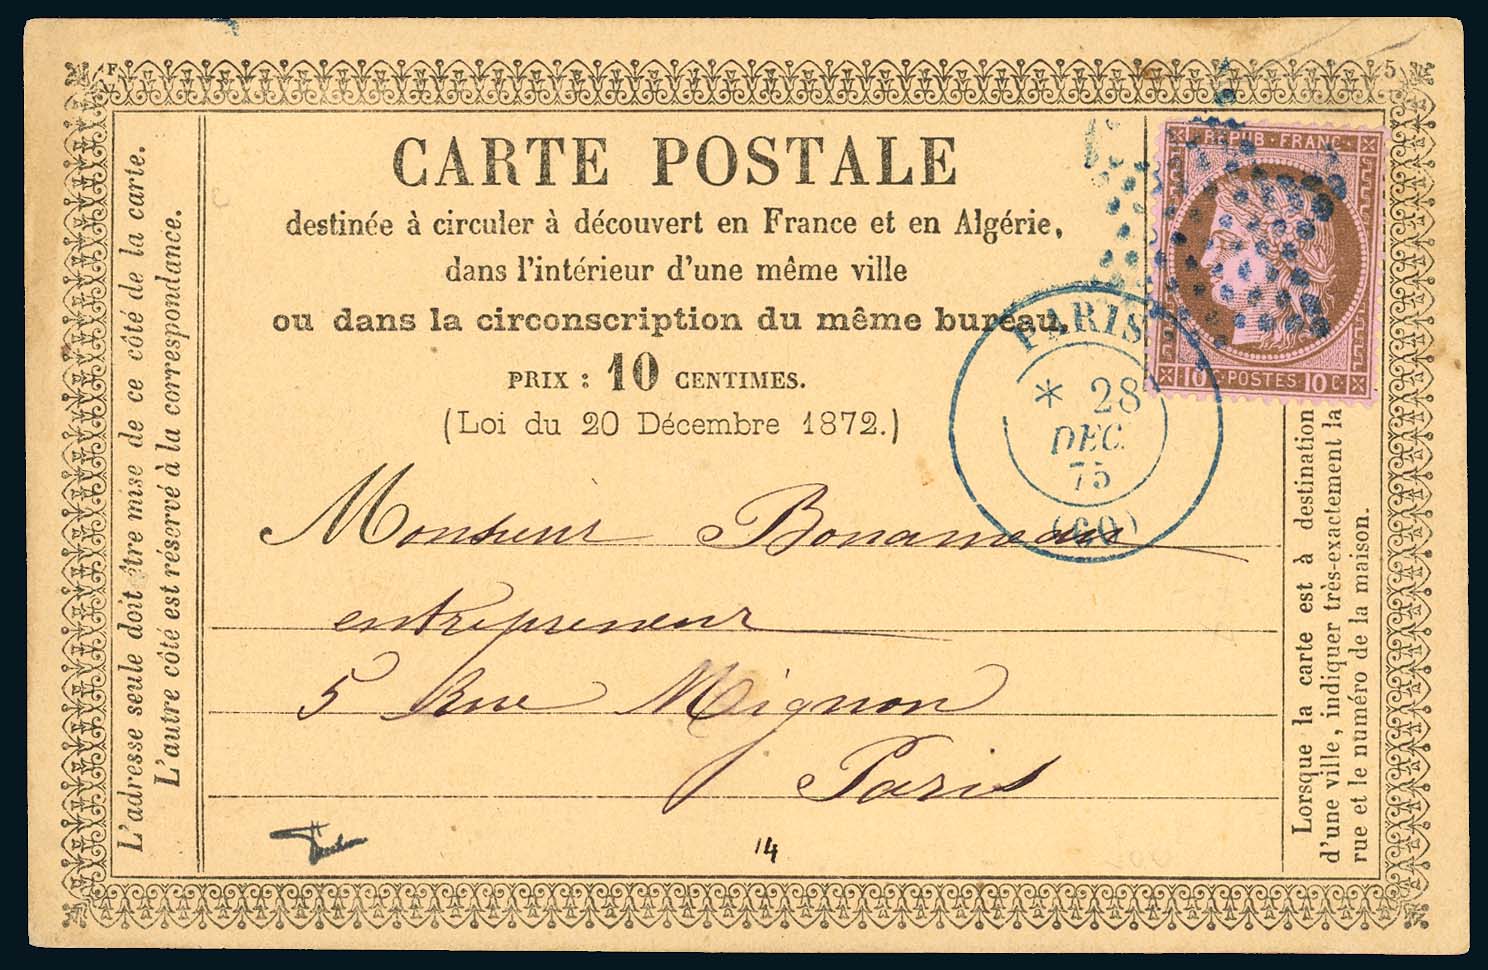 F
5
CARTE POSTALE
destinée à circuler à découvert en France et en Algérie,
dans l'intérieur d'une même ville
ou dans la circonscription du même bureau,
PRIX : 10 CENTIMES.
(Loi du 20 Décembre 1872.)
REPUB · FRANC ·
10 C · POSTES · 10 C
PARIS
* 28
DEC.
75
(60)
Monsieur Bonameau
entrepreneur
5 Rue Mignon
Paris
14
L'adresse seule doit être mise de ce côté de la carte.
L'autre côté est réservé à la correspondance.
Lorsque la carte est à destination
d'une ville, indiquer très-exactement la
rue et le numéro de la maison.